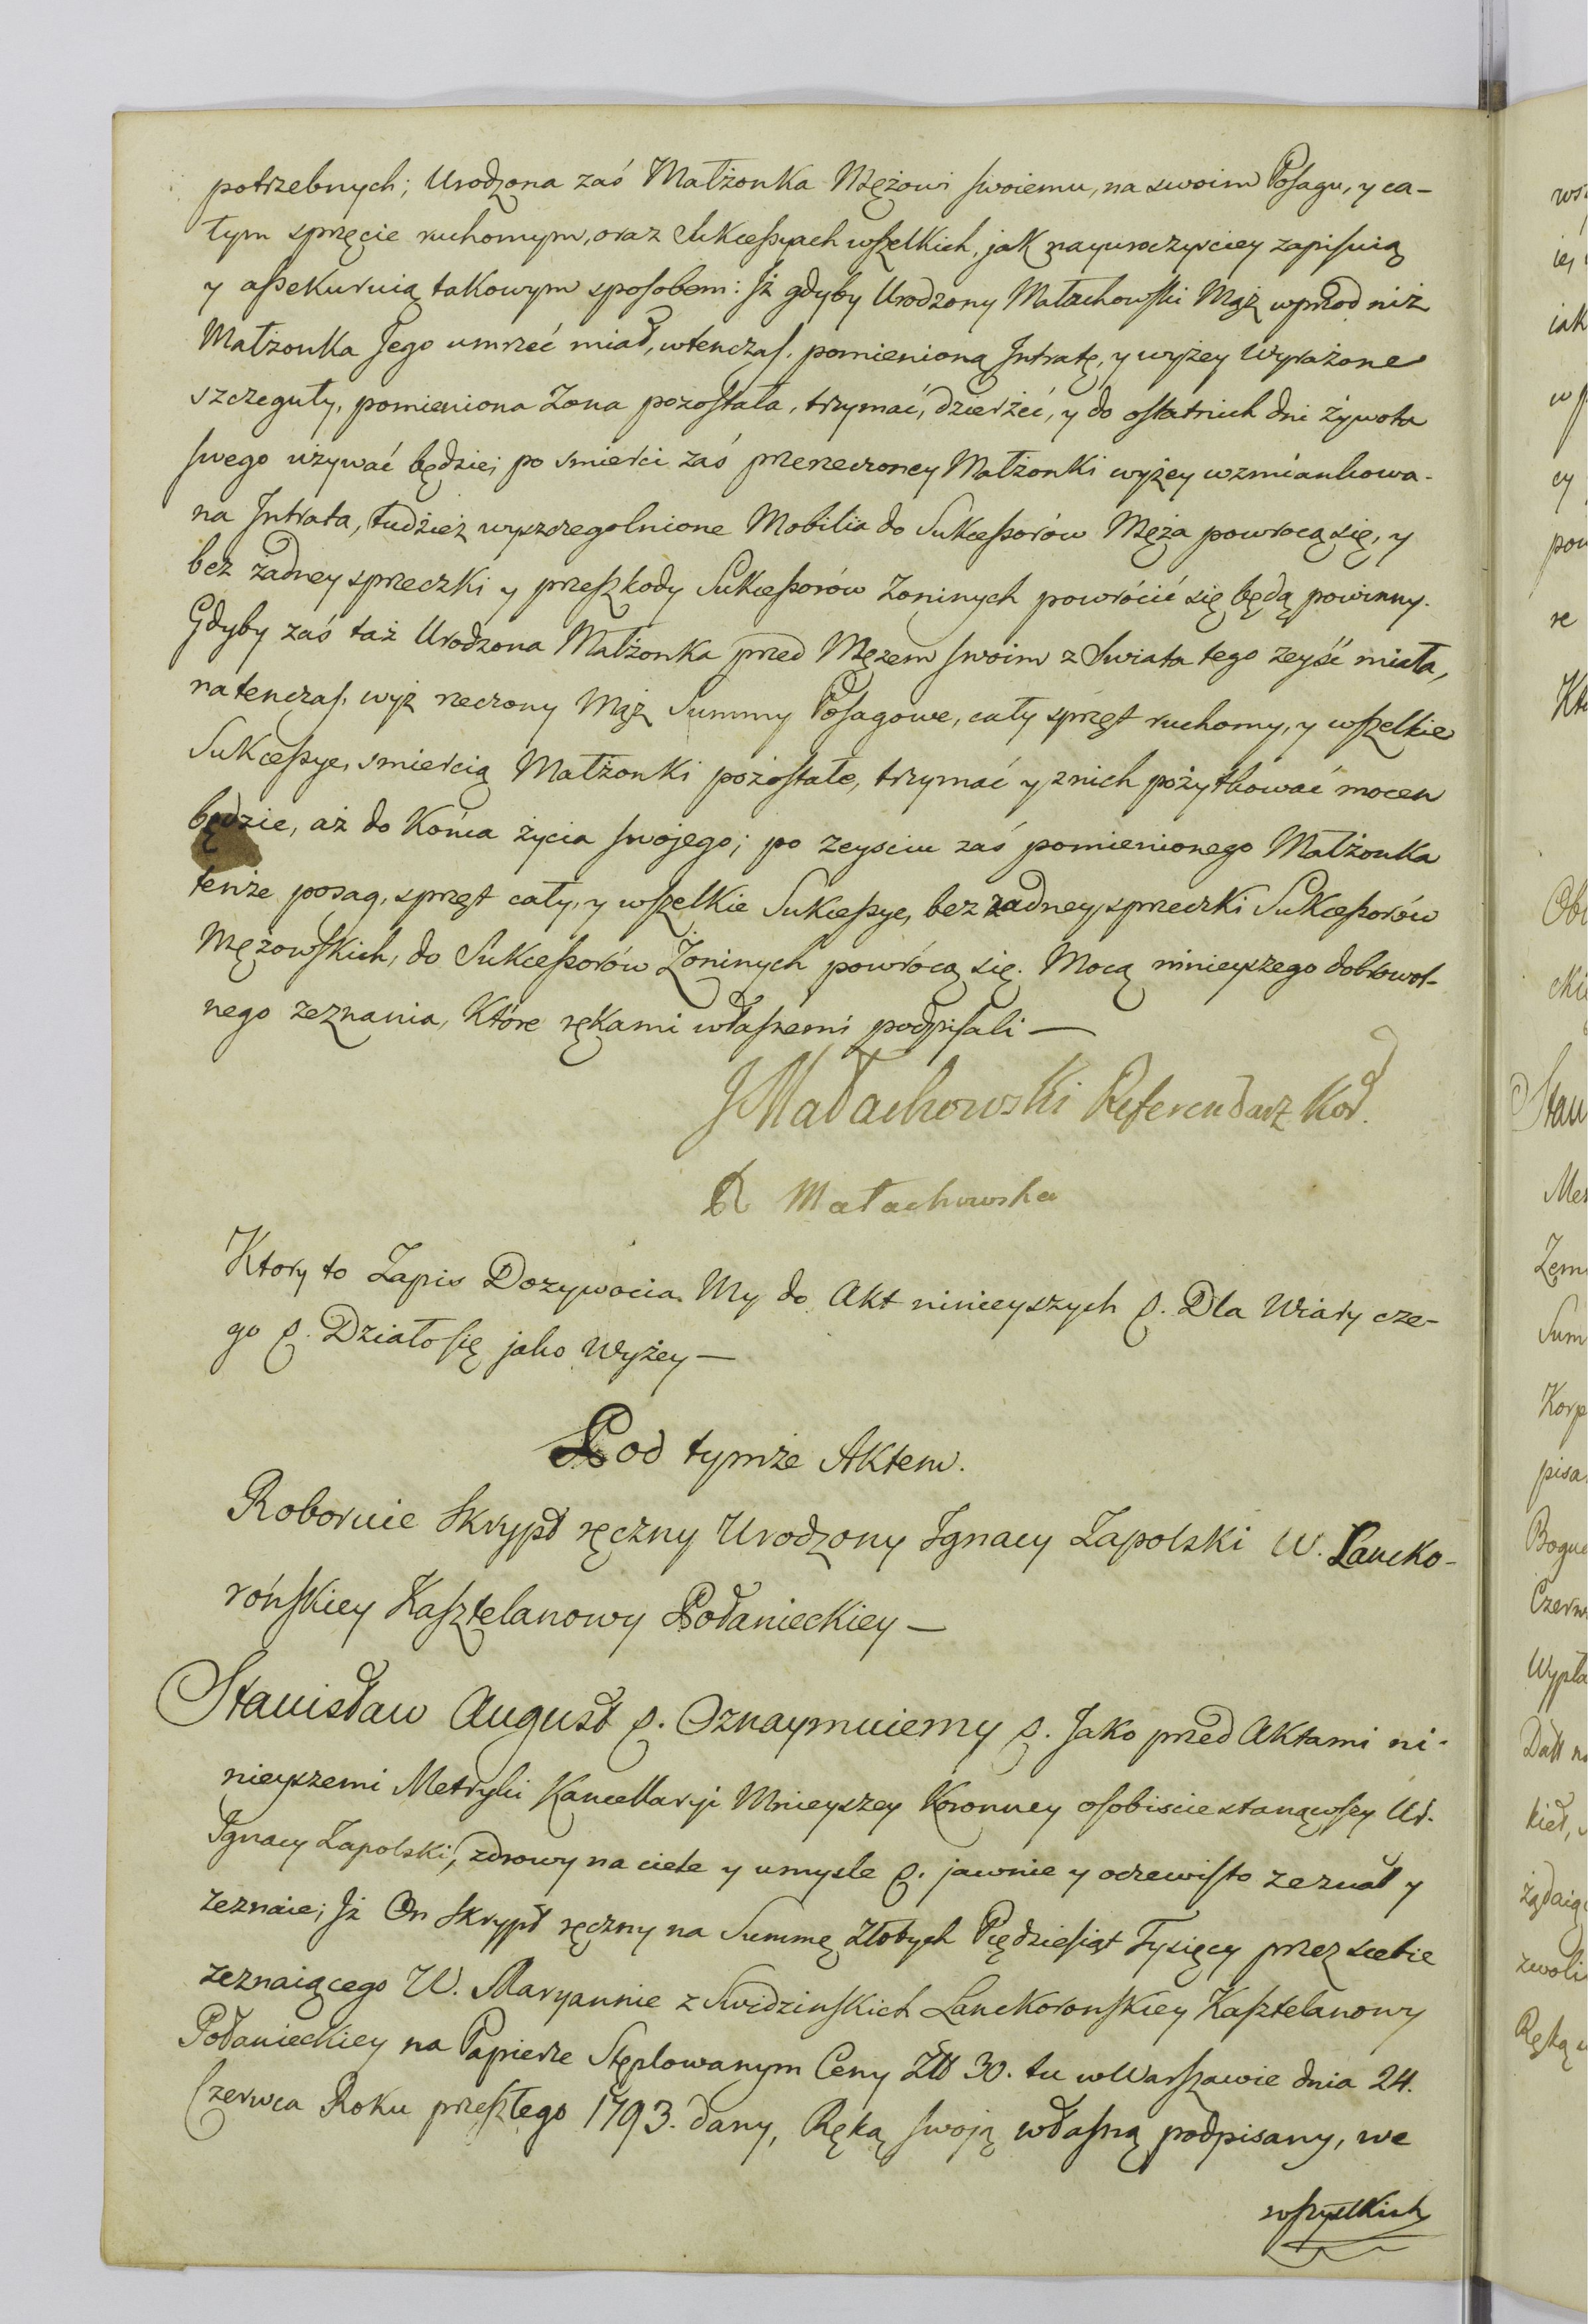 potrzebnych; Urodzona zaś Małżonka Mężowi swoiemu, na swoim Posagu, y ca-
łym sprzęcie ruchomym, oraz Sukcessyach wszelkich, jak nayuroczyściey zapisuią
y assekuruią takowym sposobem: Jż gdyby Urodzony Małachowski Mąż wprzod niż
Małżonka Jego umrzeć miał, wtenczas, pomienioną Jntratę, y wyżey Wyrażone
szczeguły, pomieniona Zona pozostała, trzymać, dzierżeć, y do ostatnich dni żywota
swego używać będzie; po smierci zaś przerzeczoney Małżonki wyżey wzmiankowa-
na Jntrata, tudzież wyszczegolnione Mobilia do Sukcessorów Męża powrocą się, y
bez żadney sprzeczki y przeszkody Sukcessorów Zoninych powrócić się będą powinny.
Gdyby zaś taż Urodzona Małżonka przed Mężem swoim z Swiata tego zeyść miała,
natenczas, wyż rzeczony Mąż Summy Posagowe, cały sprzęt ruchomy, y wszelkie
Sukcessye, smiercią Małżonki pozostałe, trzymać y z nich pożytkować mocen
będzie, aż do Końca życia swojego; po zeysciu zaś pomienionego Małżonka
tenże posag, sprzęt cały, y wszelkie Sukcessye, bez żadney sprzeczki Sukcessorów
Mężowskich, do Sukcessorów Żoninych powrócą się. Mocą ninieyszego dobrowol-
nego zeznania, Które rękami własnemi podpisali —
J Małachowski Referendarz Kor.
Małachowska
Ktory to Zapis Dozywocia My do Akt ninieyszych p. Dla Wiary cze-
go p. Działo się jako Wyżey —
Pod tymże Aktem.
Roboruie Skrypt ręczny Urodzony Jgnacy Zapolski W. Lancko-
rońskiey Kasztelanowy Połanieckiey —
Stanisław August p. Oznaymuiemy p. Jako przed Aktami ni-
nieyszemi Metryki Kancellaryi Mnieyszey Koronney osobiscie stanąwszy Ur.
Jgnacy Zapolski, zdrowy na ciele y umysle p. jawnie y oczewisto zeznał y
zeznaie; Jż On Skrypt ręczny na Summę Złotych Piędziesiąt Tysięcy przez siebie
zeznaiącego W. Maryannie z Swidzinskich Lanckoronskiey Kasztelanowy
Połanieckiey na Papierze Stęplowanym Ceny Złł 30. tu w Warszawie dnia 24.
Czerwca Roku przeszłego 1793. dany, Ręką swoją własną podpisany, we
wszystkich